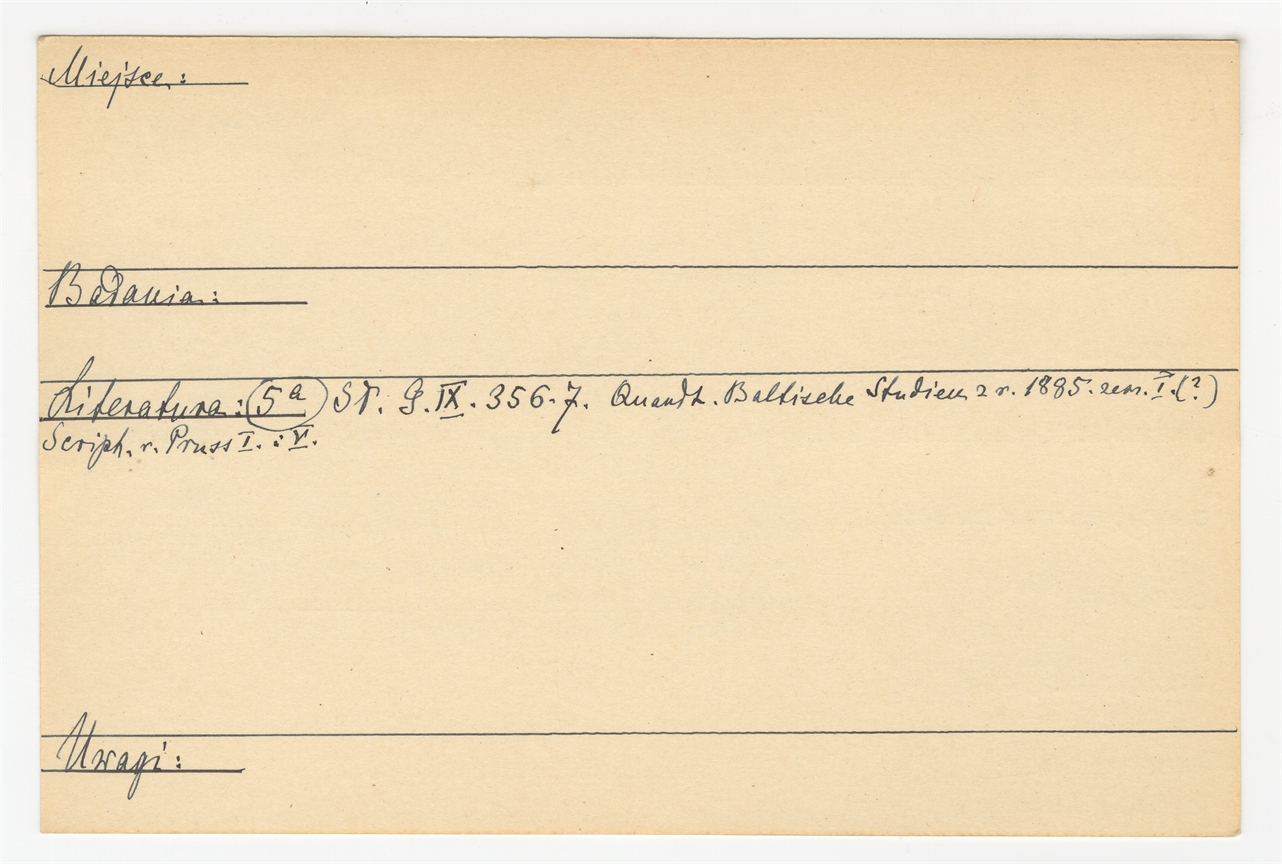 Miejsce:
Badania:
Literatura: 5a Sł. G. IX. 356-7. Quandt. Baltische Studien z r. 1885. zesz. I. (?)
Script. r. Pruss I. i V.
Uwagi: